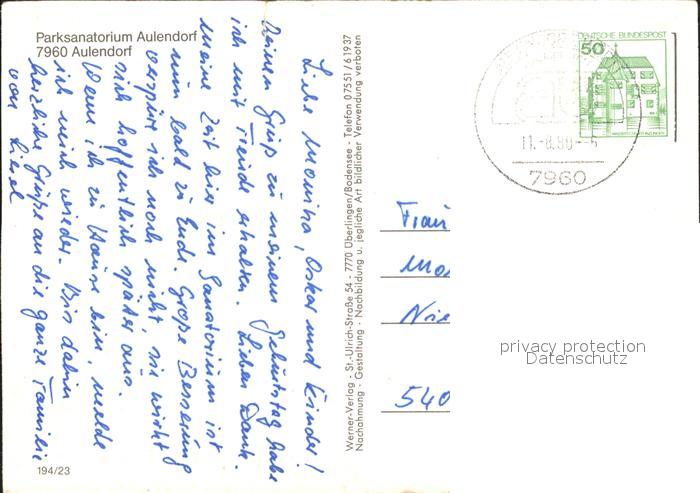 Parksanatorium Aulendorf
7960 Aulendorf
Liebe Monika, Oskar und Kinder!
Deinen Gruß zu meinem Geburtstag habe
ich mit Freude erhalten. Lieben Dank.
Meine Zeit hier im Sanatorium ist
nun bald zu Ende. Große Besserung
verspüre ich noch nicht, sie wirkt
sich hoffentlich später aus.
Wenn ich zu Hause bin, melde
ich mich wieder. Bis dahin
herzliche Grüße an die ganze Familie
von Liesel
194/23
Werner-Verlag · St.-Ulrich-Straße 54 · 7770 Überlingen/Bodensee · Telefon (07551) 61937
Nachahmung · Gestaltung · Nachbildung u. jegliche Art bildlicher Verwendung verboten
DEUTSCHE BUNDESPOST
50
11.-8.80--
7960
Frau
Mo
Nie
540
privacy protection
Datenschutz